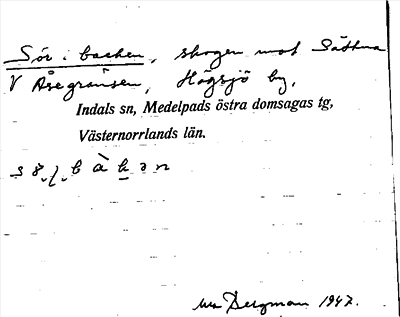 Sör i backen, skogen mot Sättna
V Åsegränsen, Högsjö by,
Indals sn, Medelpads östra domsagas tg,
Västernorrlands län.
Bergman 1947.